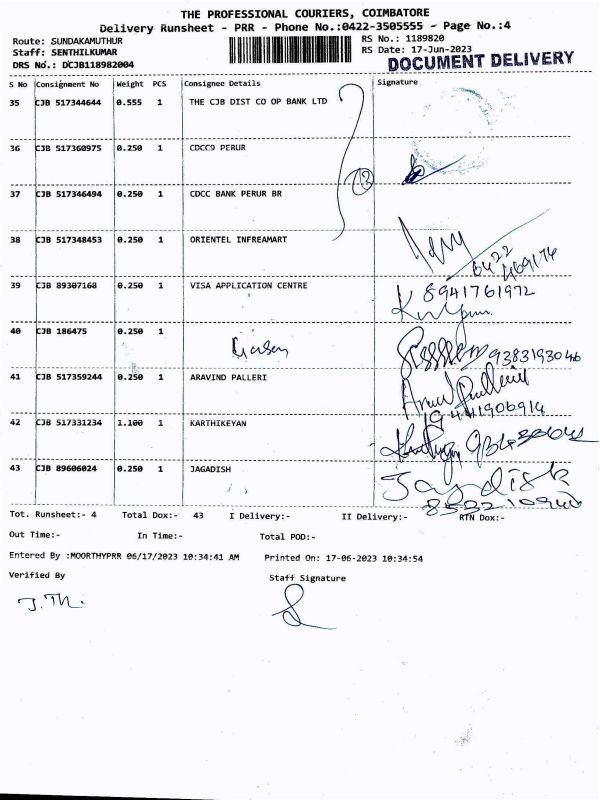 THE PROFESSIONAL COURIERS, COIMBATORE
Delivery Runsheet - PRR - Phone No.:0422-3505555 - Page No.:4
Route: SUNDAKAMUTHUR
RS No.: 1189820
Staff: SENTHILKUMAR
RS Date: 17-Jun-2023
DRS No.: DCJB118982004
DOCUMENT DELIVERY
S No Consignment No Weight PCS Consignee Details Signature
35 CJB 517344644 0.555 1 THE CJB DIST CO OP BANK LTD
36 CJB 517360975 0.250 1 CDCC9 PERUR
37 CJB 517346494 0.250 1 CDCC BANK PERUR BR
38 CJB 517348453 0.250 1 ORIENTEL INFREAMART
0422
39 CJB 89307168 0.250 1 VISA APPLICATION CENTRE 8941761972
40 CJB 186475 0.250 1
9383193046
41 CJB 517359244 0.250 1 ARAVIND PALLERI
42 CJB 517331234 1.100 1 KARTHIKEYAN
43 CJB 89606024 0.250 1 JAGADISH
Tot. Runsheet:- 4 Total Dox:- 43 I Delivery:- II Delivery:- RTN Dox:-
Out Time:- In Time:- Total POD:-
Entered By :MOORTHYPRR 06/17/2023 10:34:41 AM Printed On: 17-06-2023 10:34:54
Verified By Staff Signature